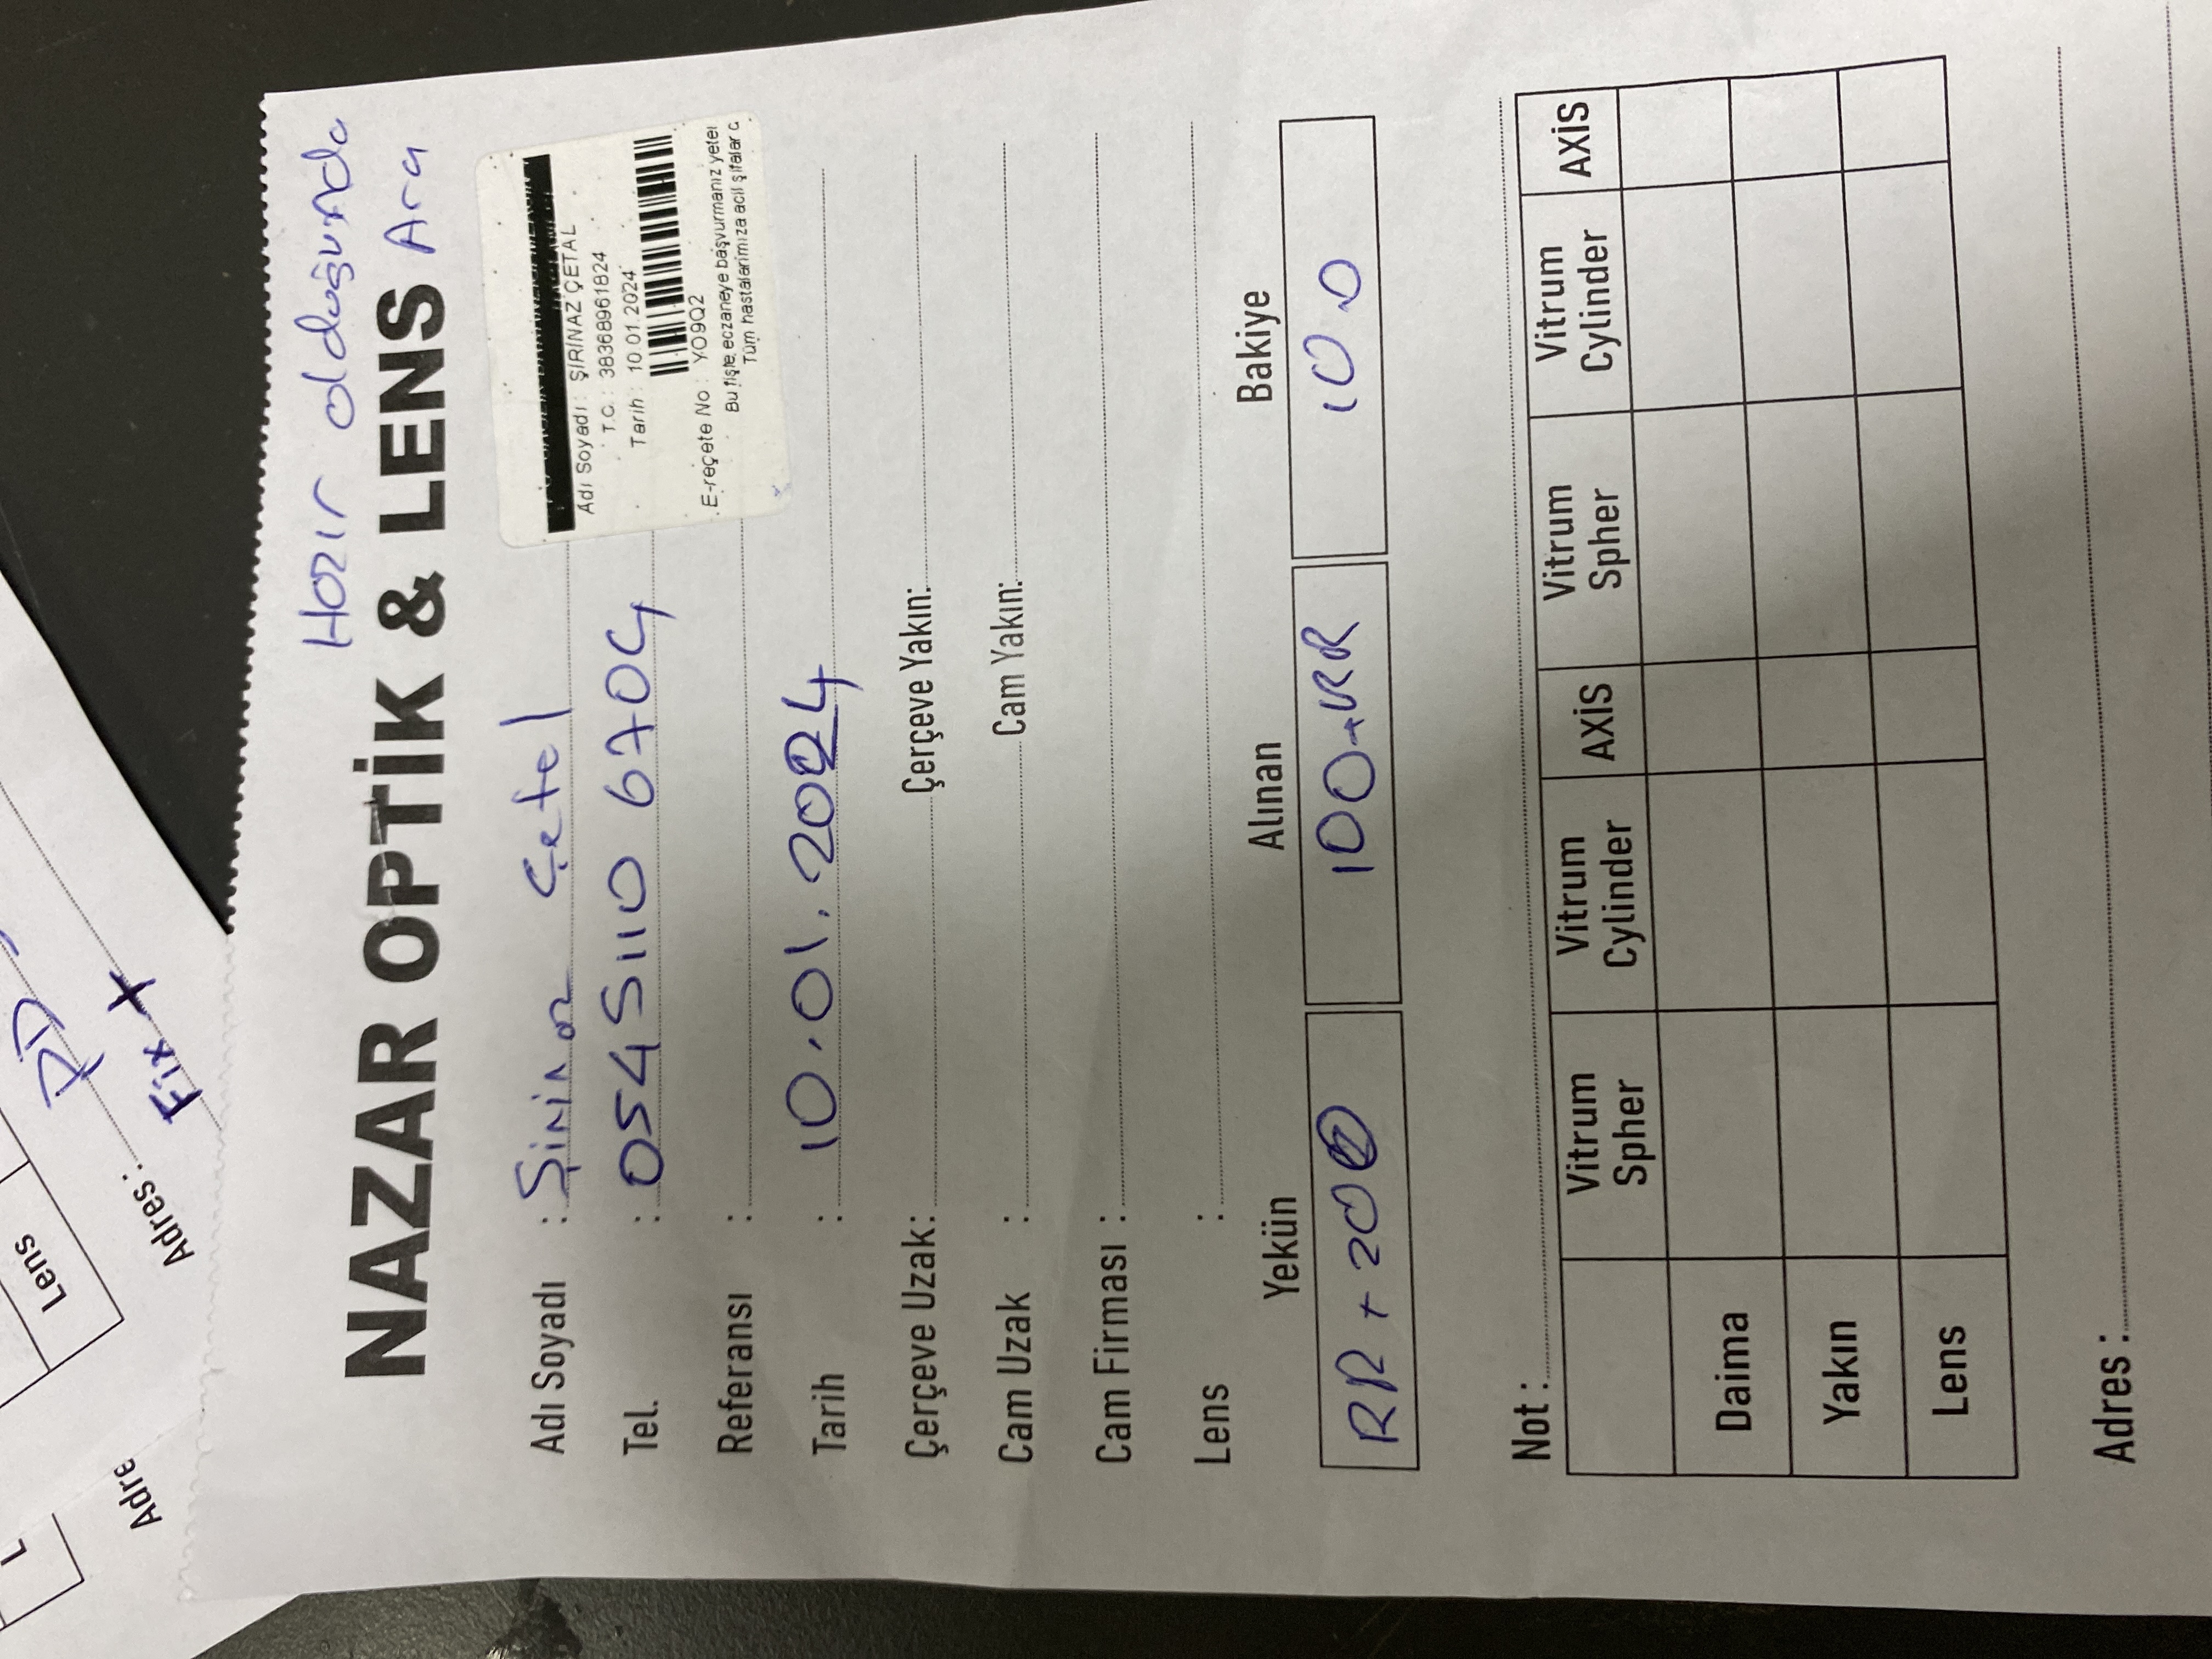 L
Lens
Adre
Adres : PD
Fix +
Hazır olduğunda
NAZAR OPTİK & LENS Ara
Adı Soyadı : Şirinaz Çetal
Tel. : 0545110 6704
Referansı :
Tarih : 10.01.2024
Adı Soyadı : ŞİRİNAZ ÇETAL
T.C. : 38368961824
Tarih : 10.01.2024
E-reçete No : YO9Q2
Bu fişle eczaneye başvurmanız yeter
Tüm hastalarımıza acil şifalar d
Çerçeve Uzak: Çerçeve Yakın:
Cam Uzak : Cam Yakın:
Cam Firması :
Lens :
Yekün Alınan Bakiye
RR + 200 100+RR 100
Not :
Vitrum Spher Vitrum Cylinder AXİS Vitrum Spher Vitrum Cylinder AXİS
Daima
Yakın
Lens
Adres :